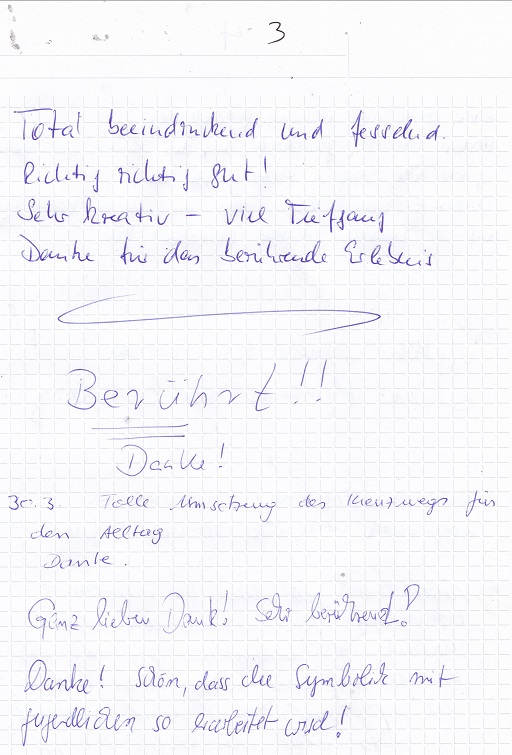 3
Total beeindruckend und fesselnd.
Richtig richtig gut!
Sehr kreativ – viel Tiefgang
Danke für das berührende Erlebnis
Berührt!!
Danke!
30.3. Tolle Umsetzung des Kreuzwegs für
den Alltag
Danke.
Ganz lieben Dank! Sehr berührend!
Danke! Schön, dass die Symbolik mit
Jugendlichen so erarbeitet wird!